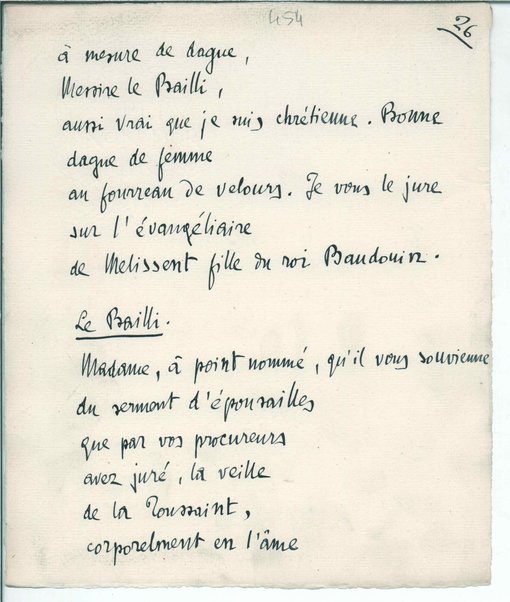 454
26
à mesure de dague,
Messire le Bailli,
aussi vrai que je suis chrétienne. Bonne
dague de femme
au fourreau de velours. Je vous le jure
sur l'évangéliaire
de Melissent fille du roi Baudouin.
Le Bailli.
Madame, à point nommé, qu'il vous souvienne
du serment d'épousailles
que par vos procureurs
avez juré, la veille
de la Toussaint,
corporelment en l'âme